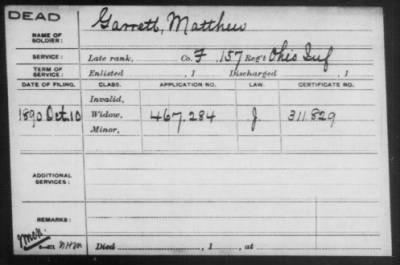 DEAD
NAME OF SOLDIER: Garrett, Matthew
SERVICE: Late rank, Co. F. 157 Reg't Ohio Inf
TERM OF SERVICE: Enlisted , 1 Discharged , 1
DATE OF FILING. CLASS. APPLICATION NO. LAW. CERTIFICATE NO.
Invalid,
1890 Oct. 10 Widow, 467.284 J. 311.829
Minor,
ADDITIONAL SERVICES:
REMARKS:
Died , 1 , at